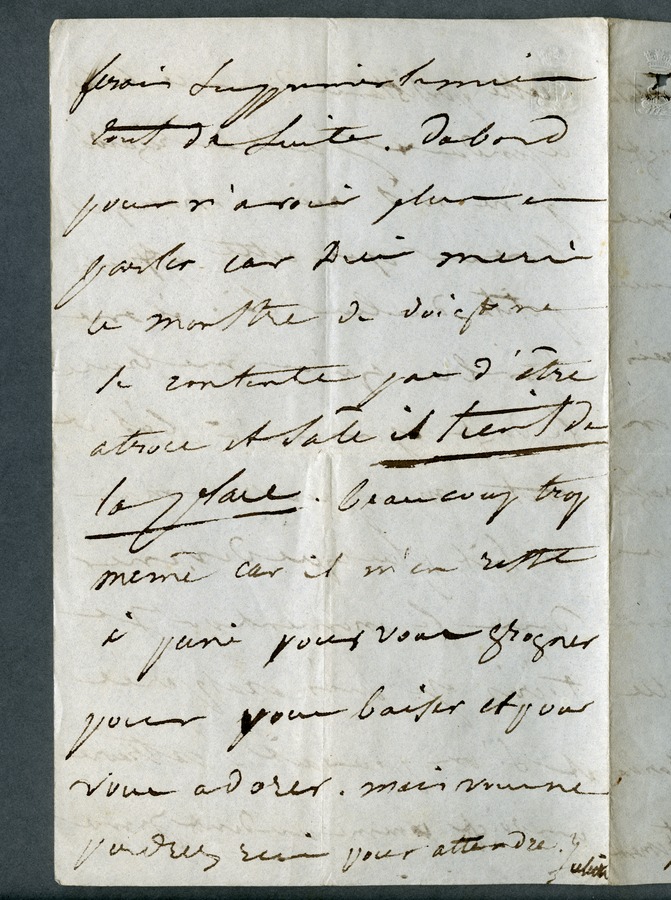 ferais supprimer le mien
tout de suite. Dabord
pour n'avoir plus en
parler car Dieu merci
ce monstre de doigt ne
se contente pas d'être
atroce et sale il tient de
la place. beaucoup trop
même car il m'en reste
à peine pour vous grogner
pour vous baiser et pour
vous adorer. mais vous ne
perdrez rien pour attendre.
Juliette